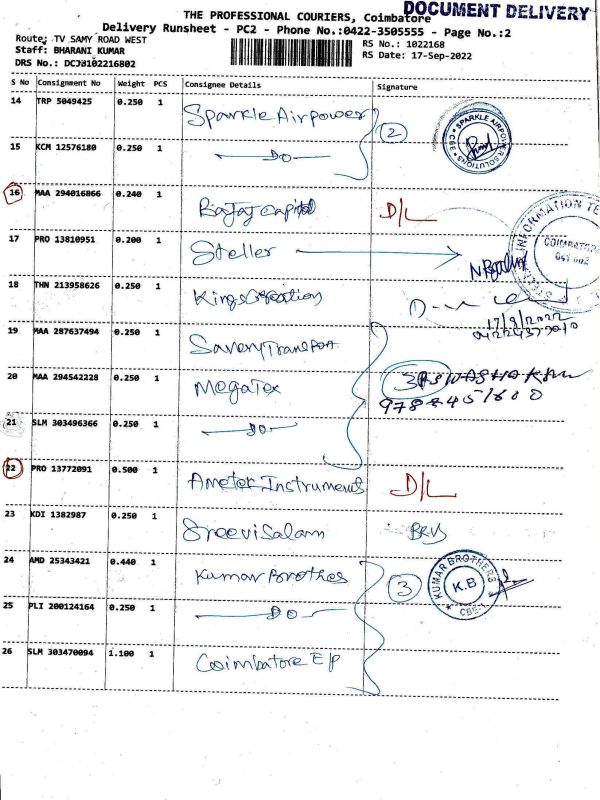 DOCUMENT DELIVERY
THE PROFESSIONAL COURIERS, Coimbatore
Delivery Runsheet - PC2 - Phone No.:0422-3505555 - Page No.:2
Route: TV SAMY ROAD WEST
RS No.: 1022168
Staff: BHARANI KUMAR
RS Date: 17-Sep-2022
DRS No.: DCJ8102216802
S No Consignment No Weight PCS Consignee Details Signature
14 TRP 5049425 0.250 1 Sparkle Airpower 2
SPARKLE AIRPOWER SOLUTIONS CBE
15 KCM 12576180 0.250 1 DO
16 MAA 294016866 0.240 1 Bajaj Capital D/L
17 PRO 13810951 0.200 1 Steller
INFORMATION TE
COIMBATORE
641 002
18 THN 213958626 0.250 1 Kings Creation
17/9/2022
19 MAA 287637494 0.250 1 Savery Transpoa
20 MAA 294542228 0.250 1 Megatex 3
21 SLM 303496366 0.250 1 DO
22 PRO 13772091 0.500 1 Ametek Instruments D/L
23 KDI 1382987 0.250 1 Sreevisalam
24 AMD 25343421 0.440 1 Kumar Brothes 3
KUMAR BROTHERS
K.B
CBE-1
25 PLI 200124164 0.250 1 DO
26 SLM 303470094 1.100 1 Coimbatore E/P